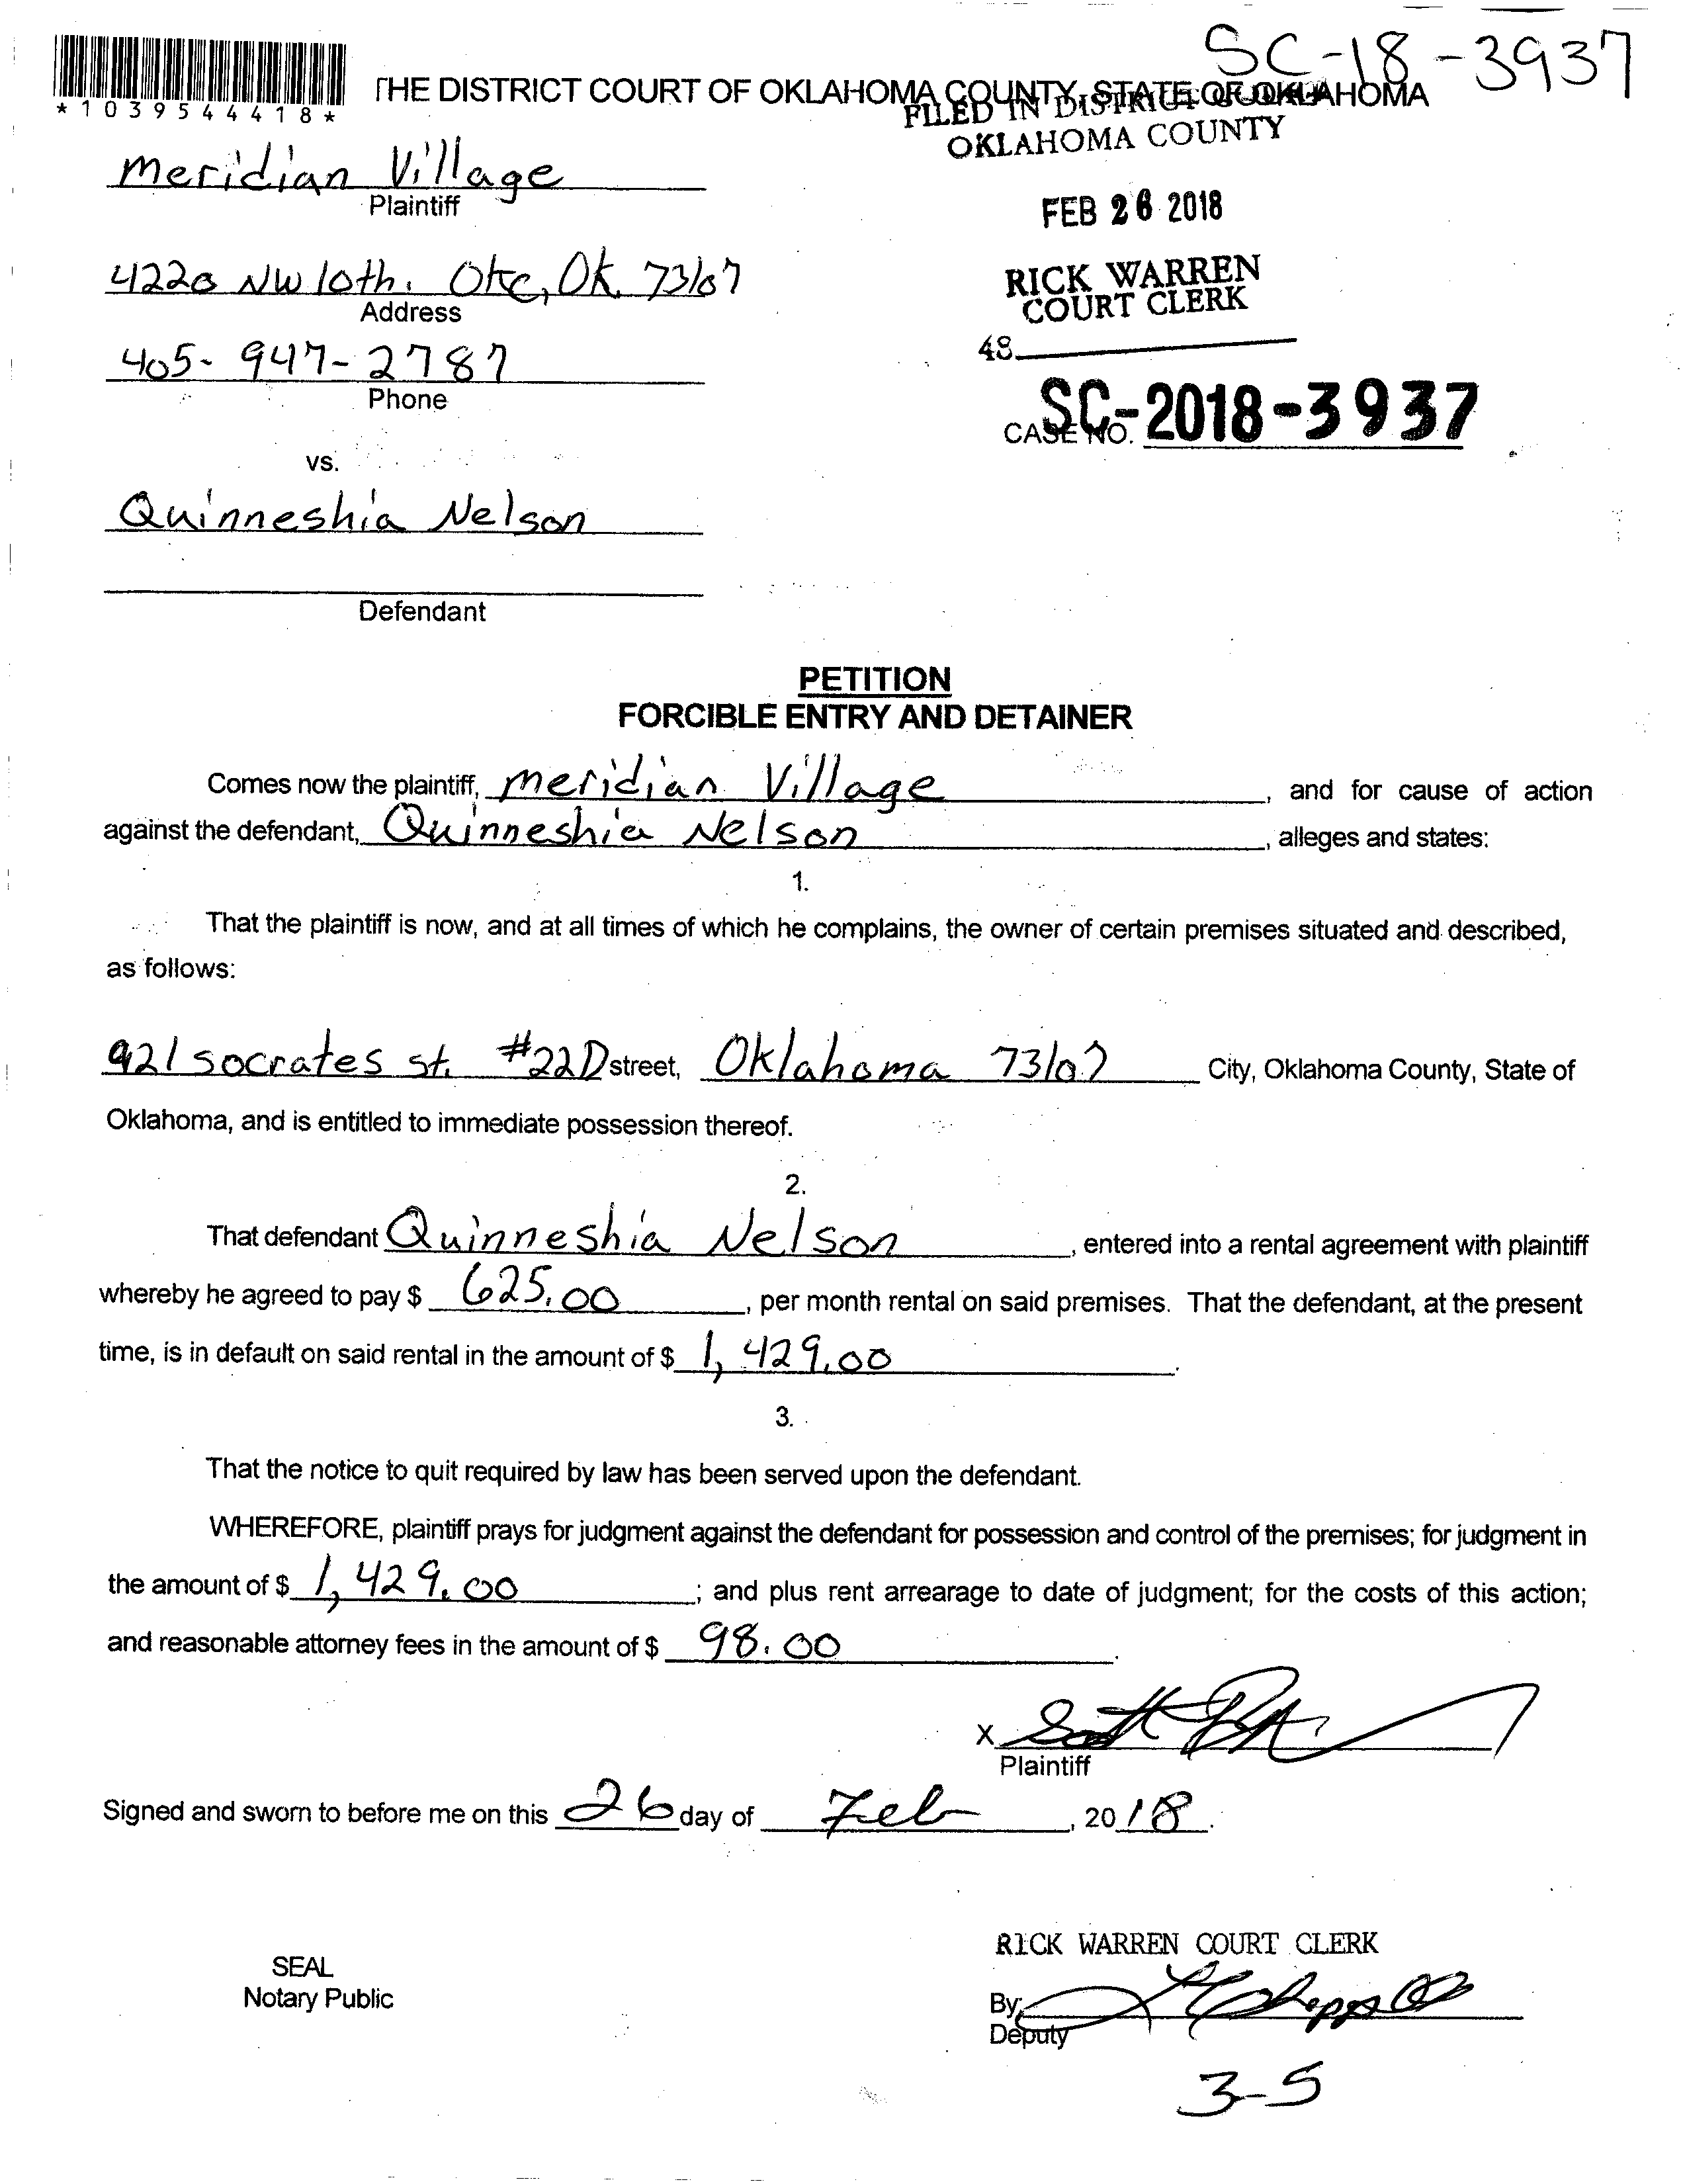 SC-18-3937
THE DISTRICT COURT OF OKLAHOMA COUNTY, STATE OF OKLAHOMA
*1039544418*
FILED IN DISTRICT COURT
OKLAHOMA COUNTY
meridian Village
Plaintiff
FEB 26 2018
4220 NW 10th. Okc, Ok. 73107
Address
RICK WARREN
COURT CLERK
405-947-2787
Phone
48
CASE NO. SC-2018-3937
vs.
Quinneshia Nelson
Defendant
PETITION
FORCIBLE ENTRY AND DETAINER
Comes now the plaintiff, meridian Village, and for cause of action
against the defendant, Quinneshia Nelson, alleges and states:
1.
That the plaintiff is now, and at all times of which he complains, the owner of certain premises situated and described,
as follows:
921 socrates st. #22D street, Oklahoma 73107 City, Oklahoma County, State of
Oklahoma, and is entitled to immediate possession thereof.
2.
That defendant Quinneshia Nelson, entered into a rental agreement with plaintiff
whereby he agreed to pay $ 625.00, per month rental on said premises. That the defendant, at the present
time, is in default on said rental in the amount of $ 1,429.00.
3.
That the notice to quit required by law has been served upon the defendant.
WHEREFORE, plaintiff prays for judgment against the defendant for possession and control of the premises; for judgment in
the amount of $ 1,429.00; and plus rent arrearage to date of judgment; for the costs of this action;
and reasonable attorney fees in the amount of $ 98.00.
X Scott
Plaintiff
Signed and sworn to before me on this 26 day of Feb, 2018.
RICK WARREN COURT CLERK
SEAL
Notary Public
By:
Deputy
3-5